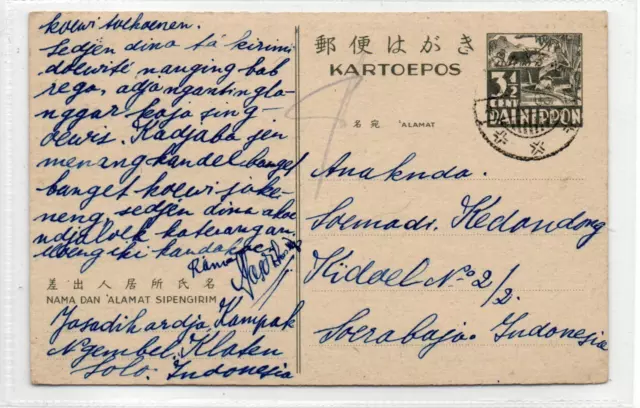 koewi soehoenen.
Sedjen dina tá kirimi
doewité nanging bab
rega, adja nganti nglang
nggar kaja sing
dewis. Kadjaba jen
menang kandel banget
banget koewi jake-
neng, sedjen dina akoe
ndjaloek katrangan.
Rama
差出人居所氏名
NAMA DAN 'ALAMAT SIPENGIRIM
Jasadihardja, Kampak
Ngembel, Klaten
Solo. Indonesia
郵便はがき
KARTOEPOS
3½
CENT
DAI NIPPON
名宛 'ALAMAT
Anaknda.
Soemadi. Kedondong
Kidoel No 2/2.
Soerabaja. Indonesia